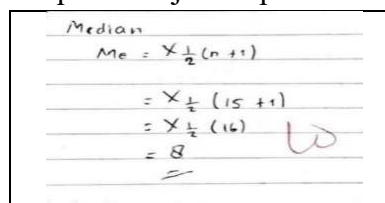 Median
Me = X 1/2 (n + 1)
= X 1/2 (15 + 1)
= X 1/2 (16)
= 8